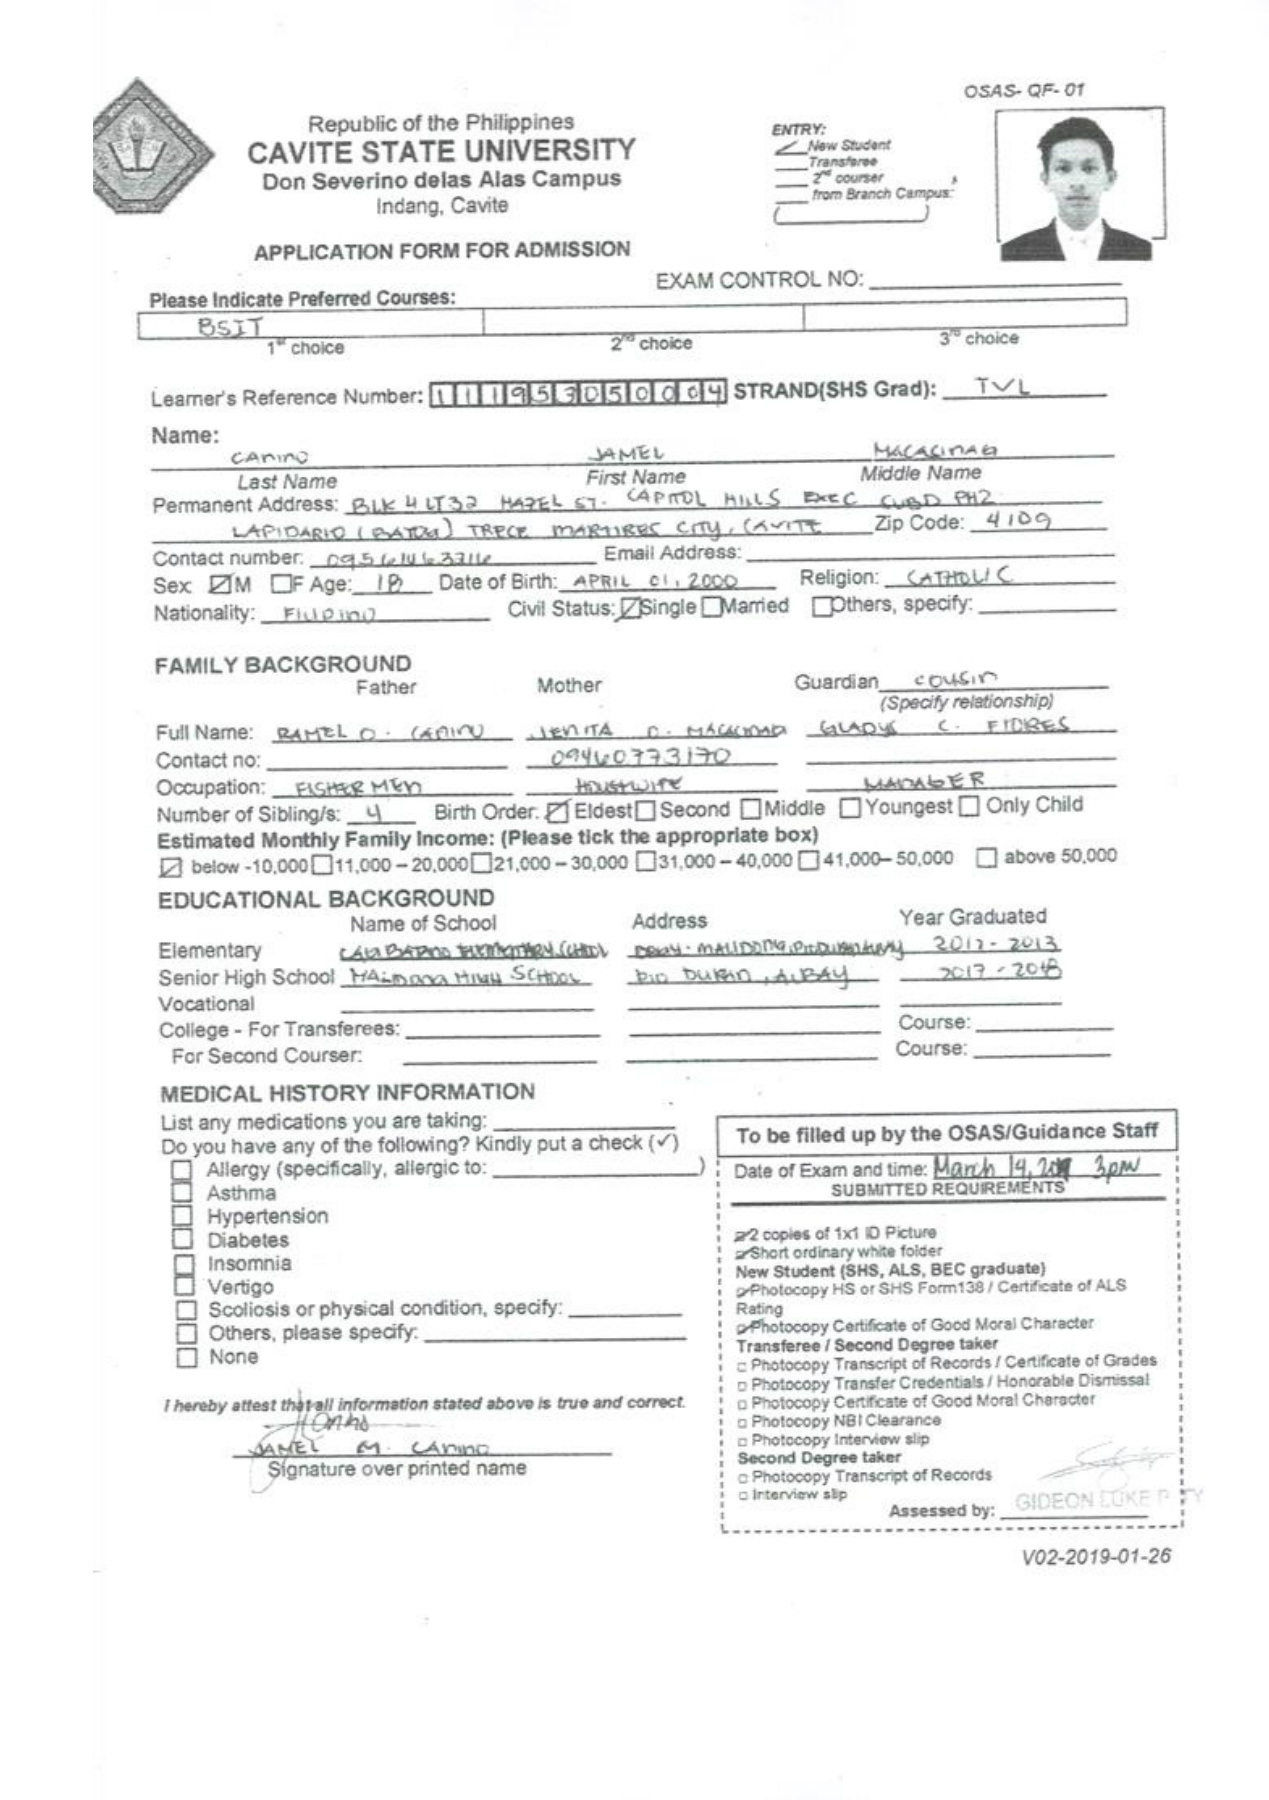 OSAS- QF- 01
Republic of the Philippines
CAVITE STATE UNIVERSITY
Don Severino delas Alas Campus
Indang, Cavite
ENTRY:
New Student
Transferee
2nd courser
from Branch Campus:
APPLICATION FORM FOR ADMISSION
EXAM CONTROL NO:
Please Indicate Preferred Courses:
BSIT
1st choice 2nd choice 3rd choice
Learner's Reference Number: 111953050004 STRAND(SHS Grad): TVL
Name:
CANINO JAMEL MACASINAG
Last Name First Name Middle Name
Permanent Address: BLK 4 LT32 HAZEL ST. CAPITOL HILLS EXEC CUBD PH2
LAPIDARIO TRECE MARTIRES CITY, CAVITE Zip Code: 4109
Contact number: Email Address:
Sex M F Age: 18 Date of Birth: APRIL 01, 2000 Religion: CATHOLIC
Nationality: FILIPINO Civil Status: Single Married Others, specify:
FAMILY BACKGROUND
Father Mother Guardian cousin
(Specify relationship)
Full Name: RAMEL O. CANINO JENITA D. MACASINAG GLADYS C. FIDRES
Contact no: 09460773170
Occupation: FISHER MEN HOUSEWIFE MANAGER
Number of Sibling/s: 4 Birth Order: Eldest Second Middle Youngest Only Child
Estimated Monthly Family Income: (Please tick the appropriate box)
below -10,000 11,000 – 20,000 21,000 – 30,000 31,000 – 40,000 41,000– 50,000 above 50,000
EDUCATIONAL BACKGROUND
Name of School Address Year Graduated
Elementary ELEMENTARY SCHOOL 2012 - 2013
Senior High School HIGH SCHOOL PIO DURAN, ALBAY 2017 - 2018
Vocational
College - For Transferees: Course:
For Second Courser: Course:
MEDICAL HISTORY INFORMATION
List any medications you are taking:
Do you have any of the following? Kindly put a check (✓)
Allergy (specifically, allergic to: )
Asthma
Hypertension
Diabetes
Insomnia
Vertigo
Scoliosis or physical condition, specify:
Others, please specify:
None
I hereby attest that all information stated above is true and correct.
JAMEL M. CANINO
Signature over printed name
To be filled up by the OSAS/Guidance Staff
Date of Exam and time: March 14, 3pm
SUBMITTED REQUIREMENTS
2 copies of 1x1 ID Picture
Short ordinary white folder
New Student (SHS, ALS, BEC graduate)
Photocopy HS or SHS Form138 / Certificate of ALS
Rating
Photocopy Certificate of Good Moral Character
Transferee / Second Degree taker
Photocopy Transcript of Records / Certificate of Grades
Photocopy Transfer Credentials / Honorable Dismissal
Photocopy Certificate of Good Moral Character
Photocopy NBI Clearance
Photocopy Interview slip
Second Degree taker
Photocopy Transcript of Records
Interview slip
Assessed by: GIDEON LUKE P TY
V02-2019-01-26